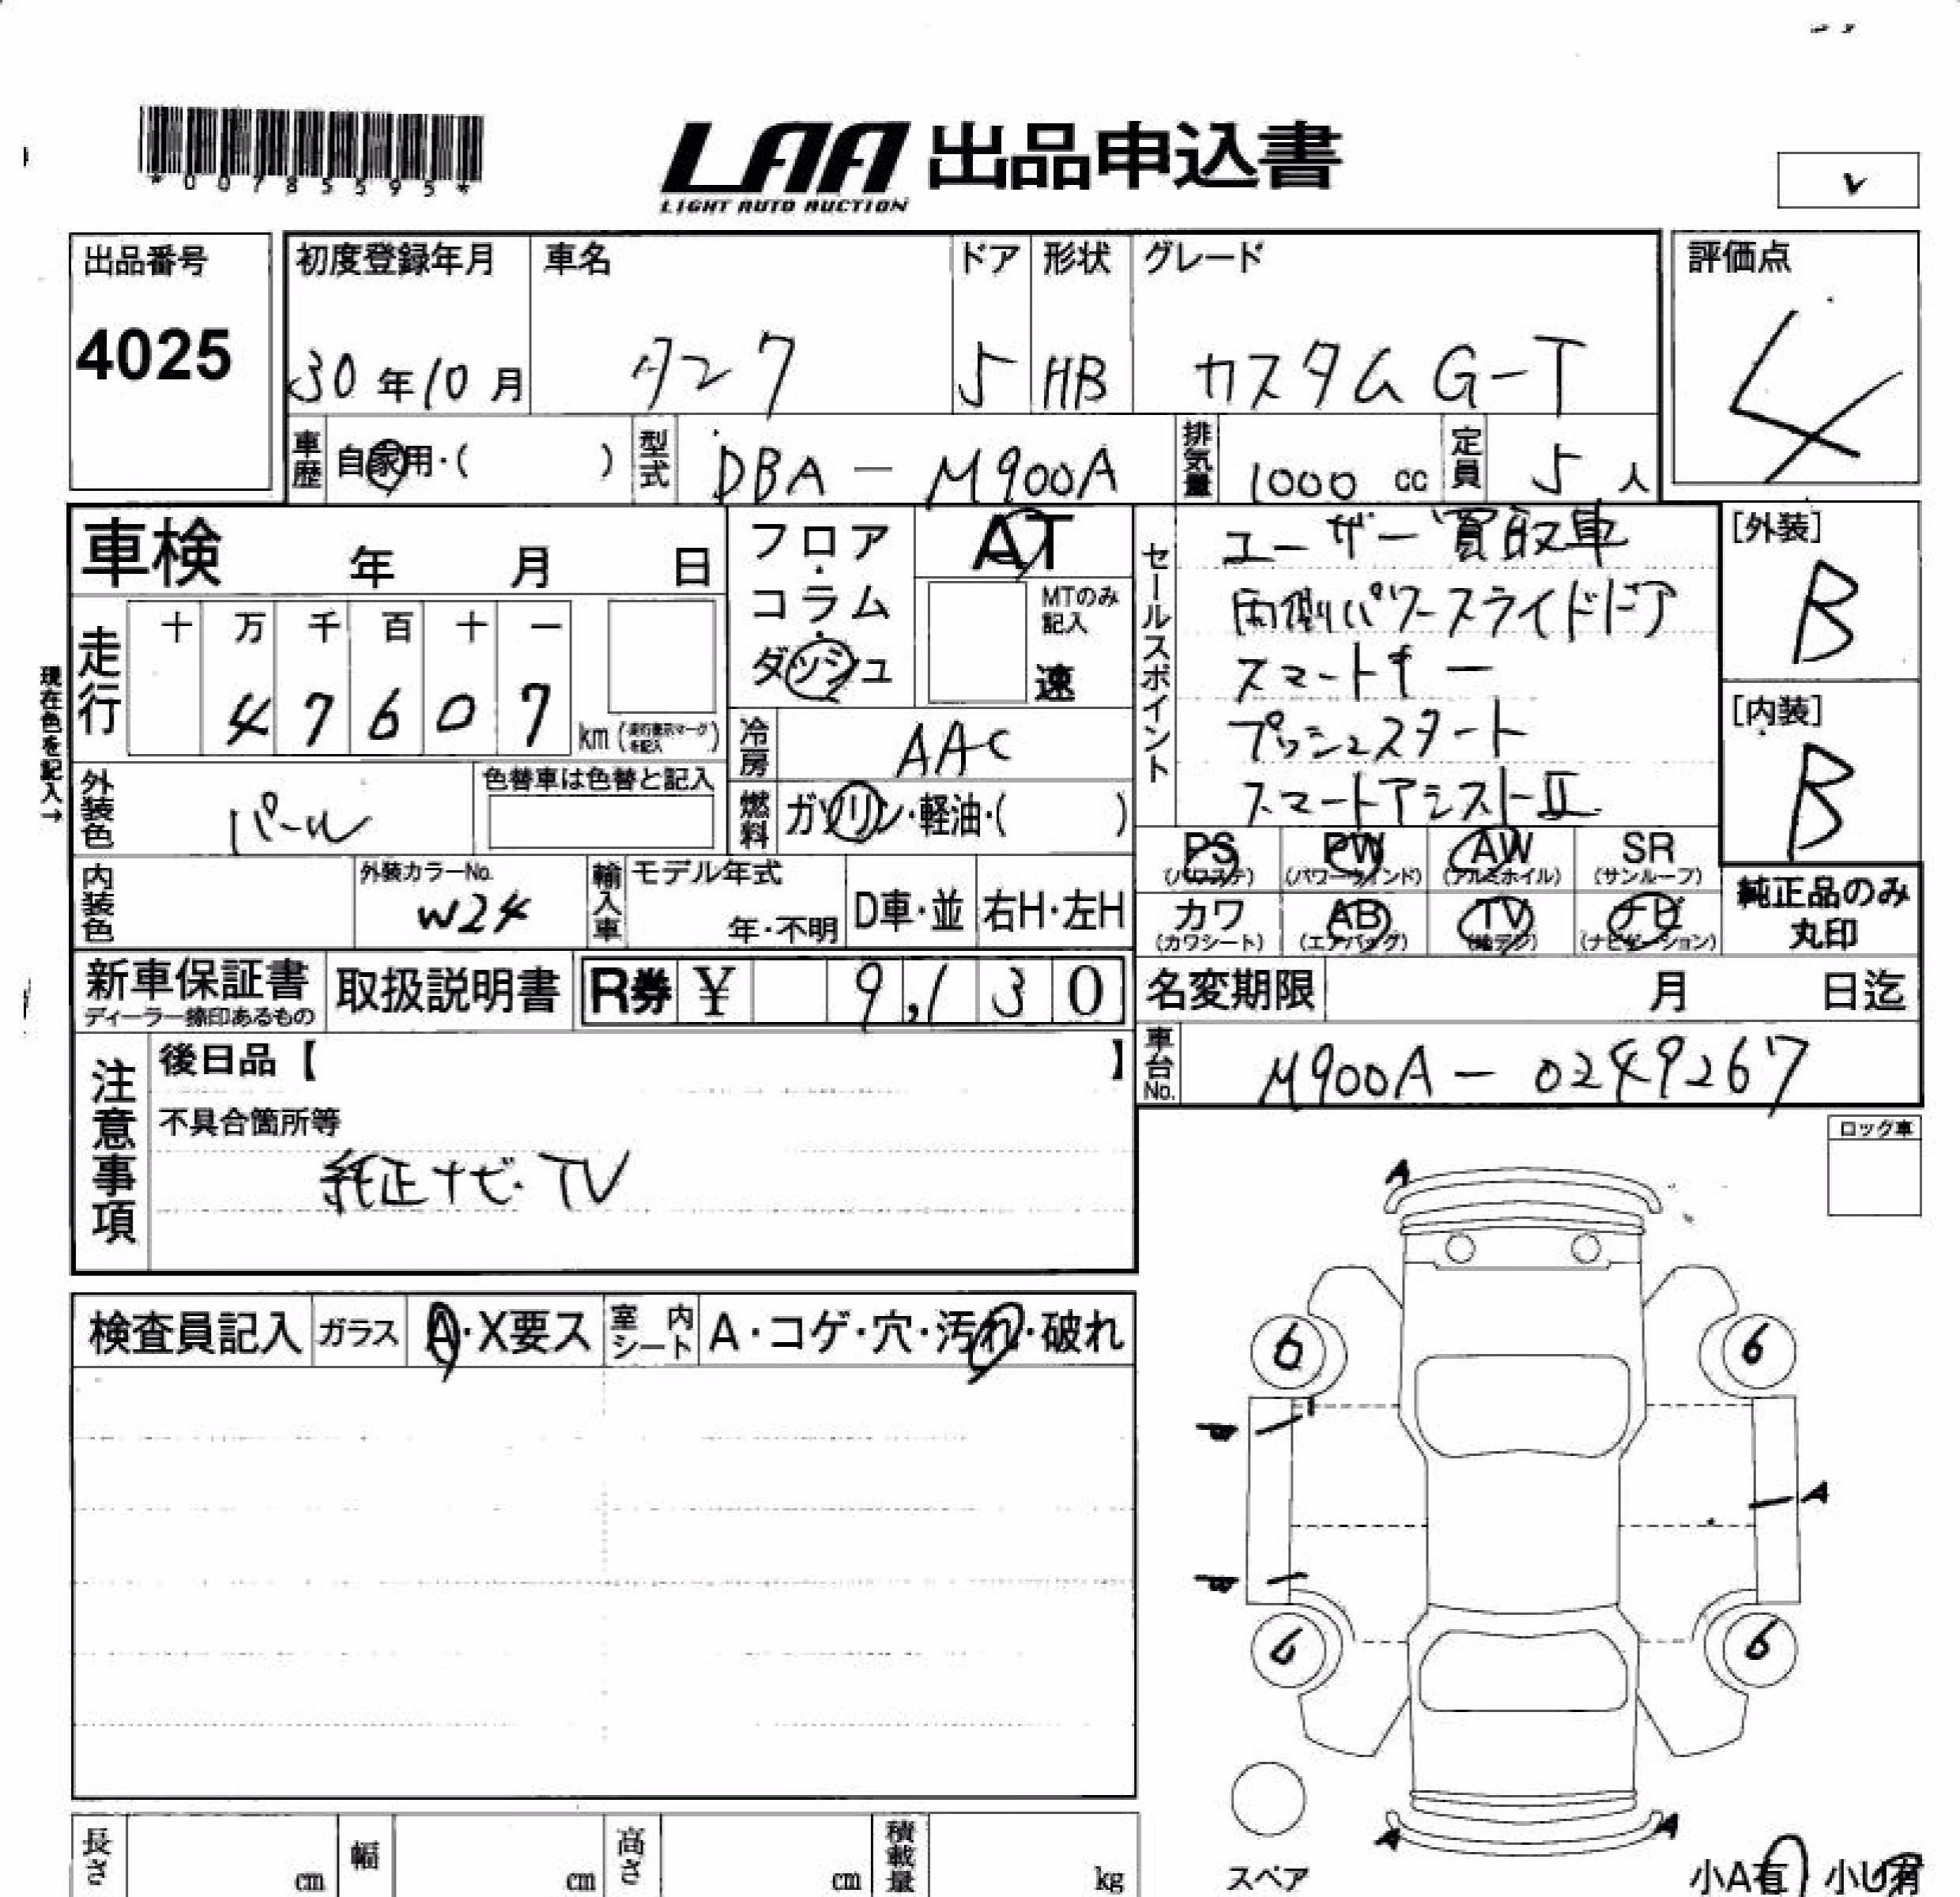 *00785595*
LAA 出品申込書
LIGHT AUTO AUCTION
v
出品番号
4025
初度登録年月
30年10月
車名
タンク
ドア
5
形状
HB
グレード
カスタムG-T
評価点
4
車歴
自家用・( )
型式
DBA-M900A
排気量
1000 cc
定員
5人
車検 年 月 日
フロア・コラム・ダッシュ
AT
MTのみ記入
速
セールスポイント
ユーザー買取車
両側パワースライドドア
スマートキー
プッシュスタート
スマートアシストII
[外装]
B
[内装]
B
現在色を記入→
走行
十 万 千 百 十 一
4 7 6 0 7
km
冷房
AAC
外装色
パール
色替車は色替と記入
燃料
ガソリン・軽油・( )
内装色
外装カラーNo.
W24
輸入車
モデル年式
年・不明
D車・並
右H・左H
PS (パワステ)
PW (パワーウインド)
AW (アルミホイル)
SR (サンルーフ)
カワ (カワシート)
AB (エアバッグ)
TV (地デジ)
ナビ (ナビゲーション)
純正品のみ
丸印
新車保証書
ディーラー捺印あるもの
取扱説明書
R券 ¥ 9,130
名変期限 月 日迄
車台No.
M900A-0249267
注意事項
後日品【 】
不具合箇所等
純正ナビ・TV
ロック車
検査員記入
ガラス
A・X要ス
室内シート
A・コゲ・穴・汚れ・破れ
A
6
6
W
A
W
6
6
A
A
スペア
小A有 小U有
長さ cm
幅 cm
高さ cm
積載量 kg